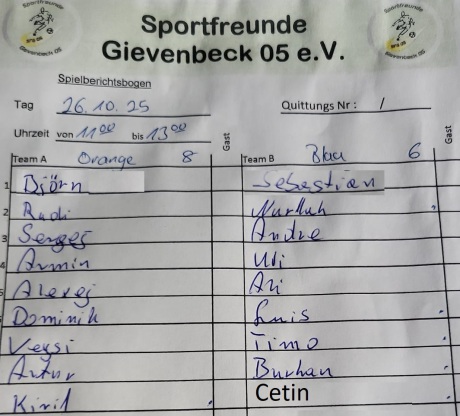 Sportfreunde
Gievenbeck 05 e.V.
Spielberichtsbogen
Tag 26.10.25 Quittungs Nr : /
Uhrzeit von 11 00 bis 13 00 Gast Gast
Team A Orange 8 Team B Blau 6
1 Björn Sebastian
2 Rudi Nurlluh
3 Sergej Andre
4 Armin Uli
5 Alexej Ali
6 Dominik Luis
Veysi Timo
Artur Burhan
Kiril Cetin